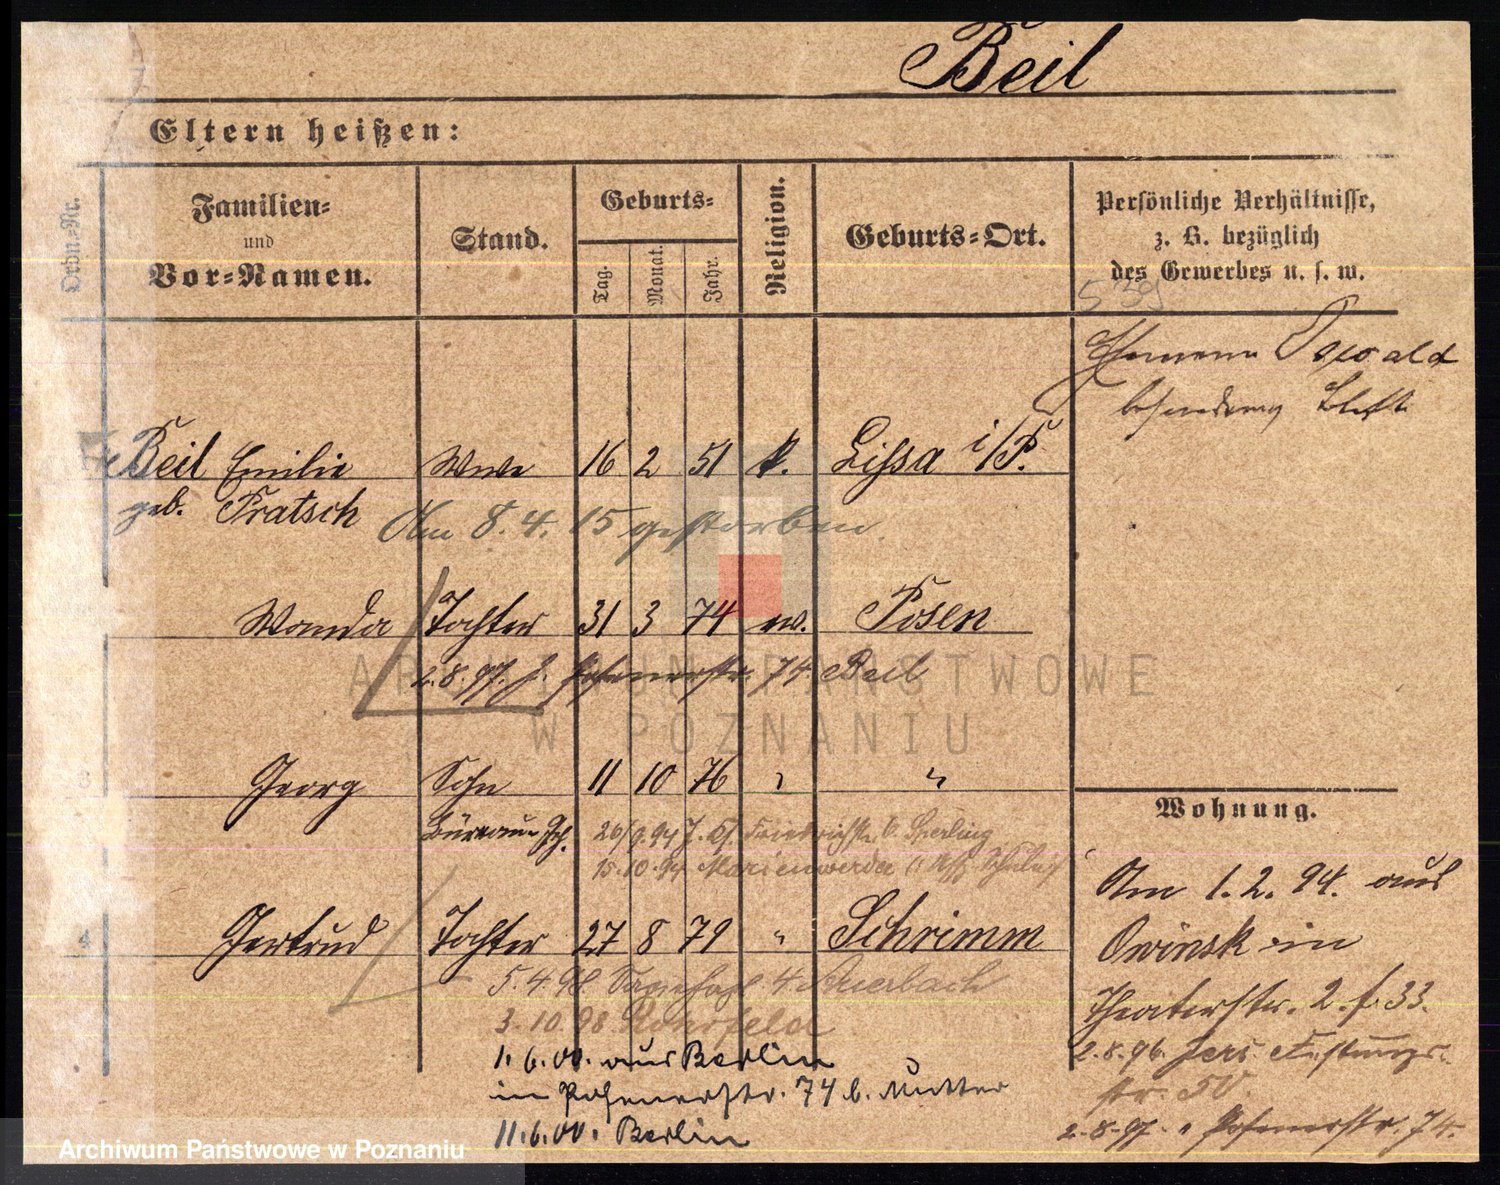 Beil
Eltern heißen:
Ordn.-Nr.
Familien-
und
Vor-Namen.
Stand.
Geburts-
Tag.
Monat.
Jahr.
Religion.
Geburts-Ort.
Persönliche Verhältnisse,
z. B. bezüglich
des Gewerbes u. s. w.
Ehemann Oswald
Beil Emilie Wwe 16 2 51 k. Lissa i/P.
geb. Pratsch Am 8. 4. 15 gestorben.
Wanda Tochter 31 3 74 ev. Posen
2.8.97. Posenerstr. 74 Beil
Georg Sohn 11 10 76 " "
26/9.94 Friedrichstr. b. Sperling
15.10.94 Marienwerder
Gertrud Tochter 27 8 79 " Schrimm
5.4.98 4 Auerbach
3.10.98 Rohrfeld
1.6.00. aus Berlin
in Posenerstr. 74 b. Mutter
11.6.00. Berlin
Wohnung.
Am 1.2.94. aus
Owinsk in
Theaterstr. 2. b. 33.
2.8.96. Festungs-
str. 50.
2.8.97. Posenerstr. 74.
ARCHIWUM PAŃSTWOWE
W POZNANIU
Archiwum Państwowe w Poznaniu